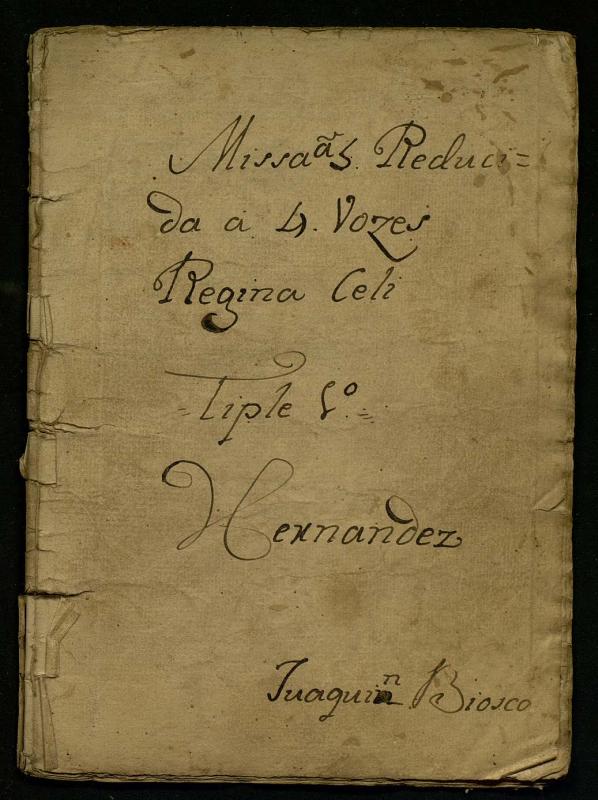 Missa ã 5. Reduci=
da a 4. Vozes
Regina Celi
=Tiple 1º.=
Hernandez
Juaquin Biosco